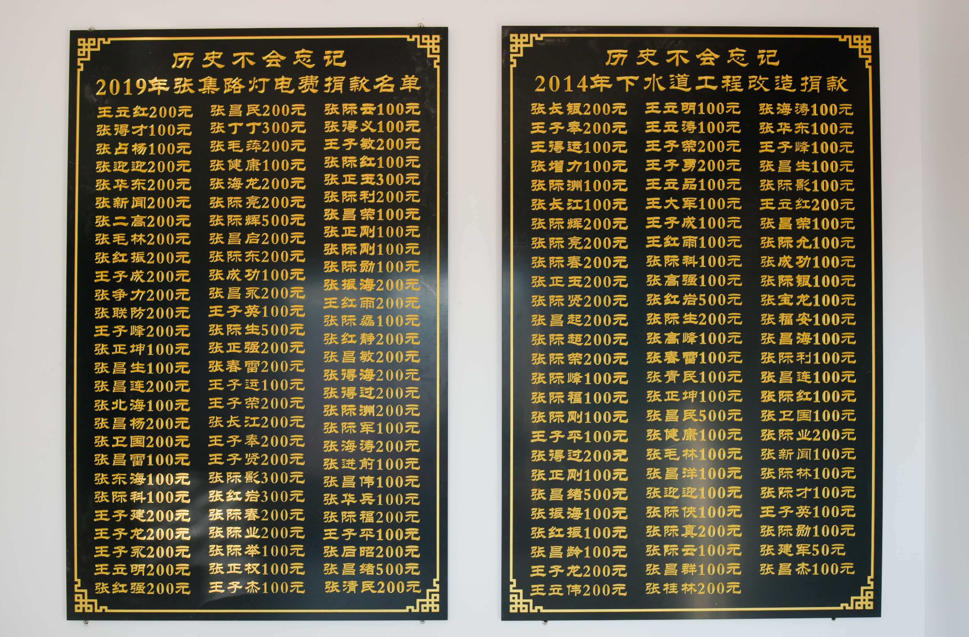 历史不会忘记
2019年张集路灯电费捐款名单
王立红200元 张昌民200元 张际云100元
张得才100元 张丁丁300元 张得义100元
张占杨100元 张毛萍200元 王子敏200元
张迎迎200元 张健康100元 张际红100元
张华东200元 张海龙200元 张正玉300元
张新闻200元 张际亮200元 张际利200元
张二高200元 张际辉500元 张昌荣100元
张毛林200元 张昌启200元 张正刚100元
张红振200元 张际东200元 张际刚100元
王子成200元 张成功100元 张际勋100元
张争力200元 张昌永200元 张振海200元
张联防200元 王子英100元 王红雨200元
王子峰200元 张际生500元 张际磊100元
张正坤100元 张正强200元 张红静200元
张昌生100元 张春雷200元 张昌敏200元
张昌连200元 王子运100元 张得海200元
张北海100元 王子荣200元 张得过200元
张昌杨200元 张长江200元 张际洲200元
张卫国200元 王子奉200元 张际军100元
张昌雷100元 王子贤200元 张海涛200元
张东海100元 张际影300元 张进前100元
张际科100元 张红岩300元 张昌伟100元
王子建200元 张际春200元 张华兵100元
王子龙200元 张际业200元 张际福200元
王子永200元 张际举100元 王子平100元
王立明200元 张正权100元 张后昭200元
张红强200元 王子杰100元 张昌绪500元
张清民200元
历史不会忘记
2014年下水道工程改造捐款
张长银200元 王立明100元 张海涛100元
王子奉200元 王立涛100元 张华东100元
王得运100元 王子荣200元 王子峰100元
张增力100元 王子勇200元 张昌生100元
张际洲100元 王立品100元 张际影100元
张长江100元 王大军100元 王立红200元
张际辉200元 王子成100元 张昌荣100元
张际亮200元 王红雨100元 张际允100元
张际春200元 张际科100元 张成功100元
张正玉200元 张高强100元 张际银100元
张际贤200元 张红岩500元 张宝龙100元
张昌起200元 张际生200元 张福安100元
张际超200元 张高峰100元 张昌海100元
张际荣200元 张春雷100元 张际利100元
张际峰100元 张青民100元 张昌连100元
张际福100元 张正坤100元 张际红100元
张际刚100元 张昌民500元 张卫国100元
王子平100元 张健康100元 张际业200元
张得过200元 张毛林100元 张新闻100元
张正刚100元 张昌洋100元 张际林100元
张昌绪500元 张迎迎100元 张际才100元
张振海100元 张际侠100元 王子英100元
张红振100元 张际真200元 张际勋100元
张昌龄100元 张际云100元 张建军50元
王子龙200元 张昌群100元 张昌杰100元
王立伟200元 张桂林200元